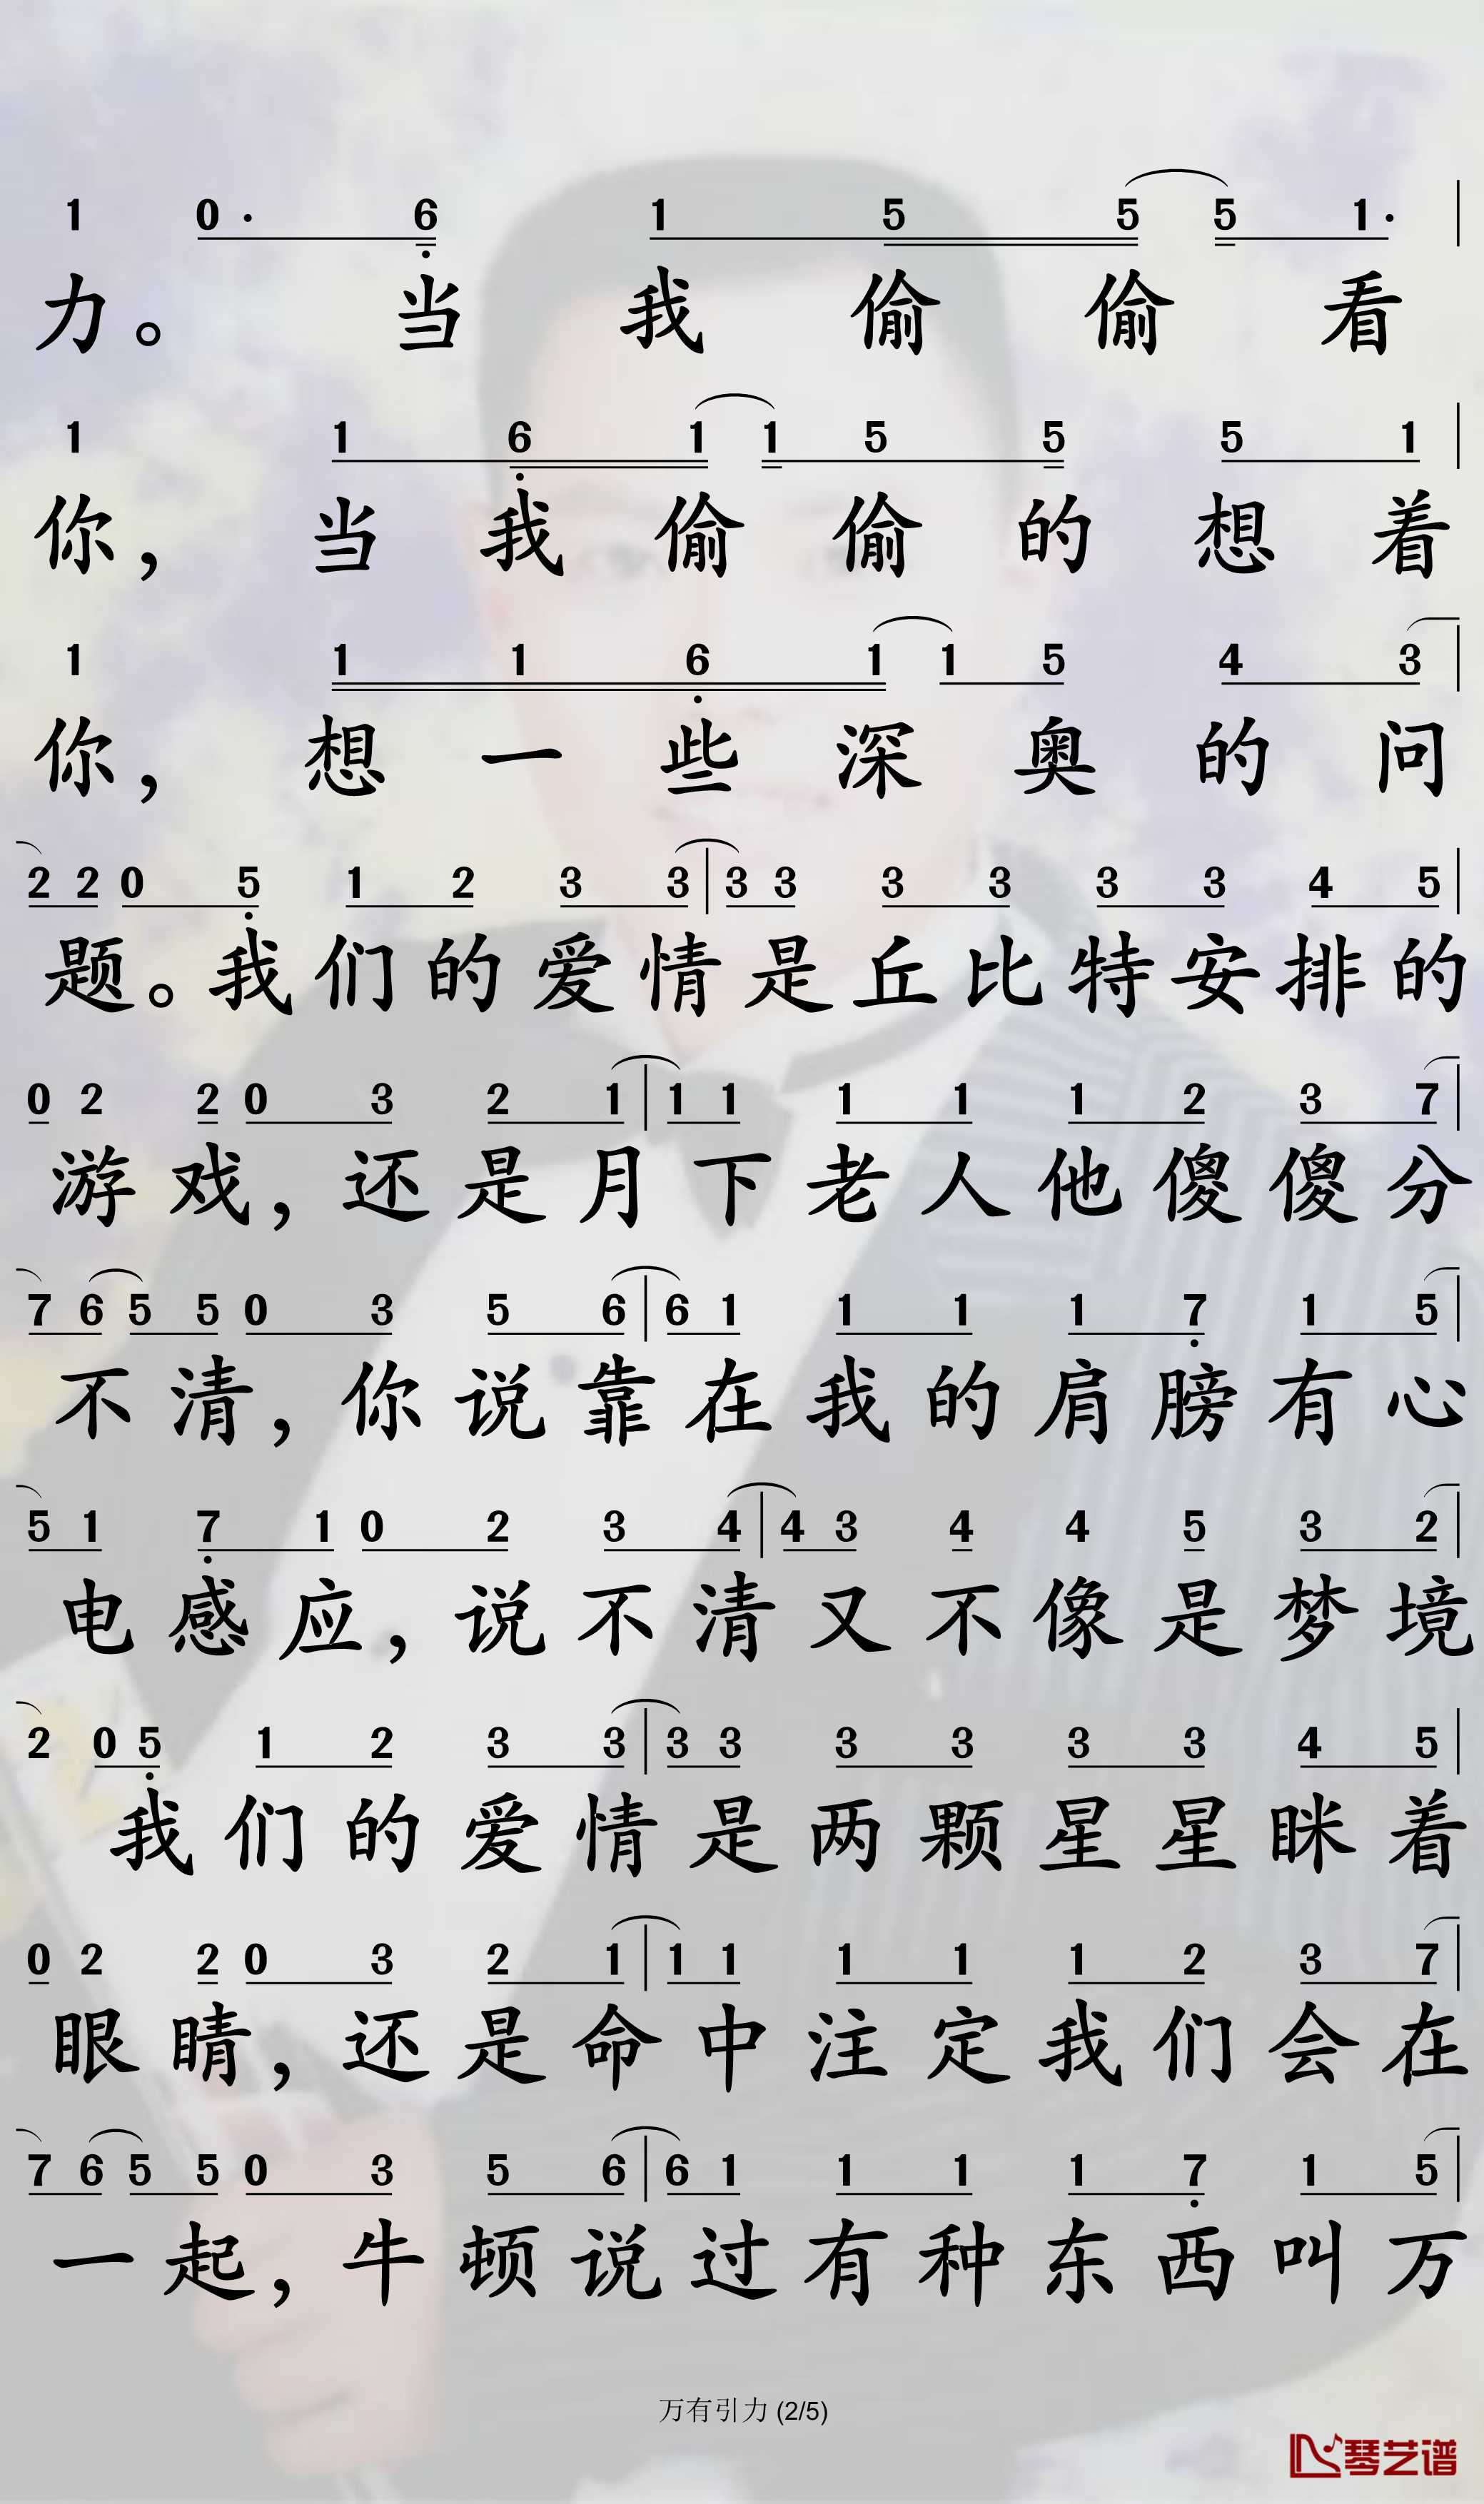 1 0· 6 1 5 5 5 1·
力。 当 我 偷 偷 看
1 1 6 1 1 5 5 5 1
你, 当 我 偷 偷 的 想 着
1 1 1 6 1 1 5 4 3
你, 想 一 些 深 奥 的 问
2 2 0 5 1 2 3 3 | 3 3 3 3 3 3 4 5
题。我 们 的 爱 情 是 丘 比 特 安 排 的
0 2 2 0 3 2 1 | 1 1 1 1 1 2 3 7
游 戏, 还 是 月 下 老 人 他 傻 傻 分
7 6 5 5 0 3 5 6 | 6 1 1 1 1 7 1 5
不 清, 你 说 靠 在 我 的 肩 膀 有 心
5 1 7 1 0 2 3 4 | 4 3 4 4 5 3 2
电 感 应, 说 不 清 又 不 像 是 梦 境
2 0 5 1 2 3 3 | 3 3 3 3 3 3 4 5
我 们 的 爱 情 是 两 颗 星 星 眯 着
0 2 2 0 3 2 1 | 1 1 1 1 1 2 3 7
眼 睛, 还 是 命 中 注 定 我 们 会 在
7 6 5 5 0 3 5 6 | 6 1 1 1 1 7 1 5
一 起, 牛 顿 说 过 有 种 东 西 叫 万
万有引力 (2/5)
琴艺谱